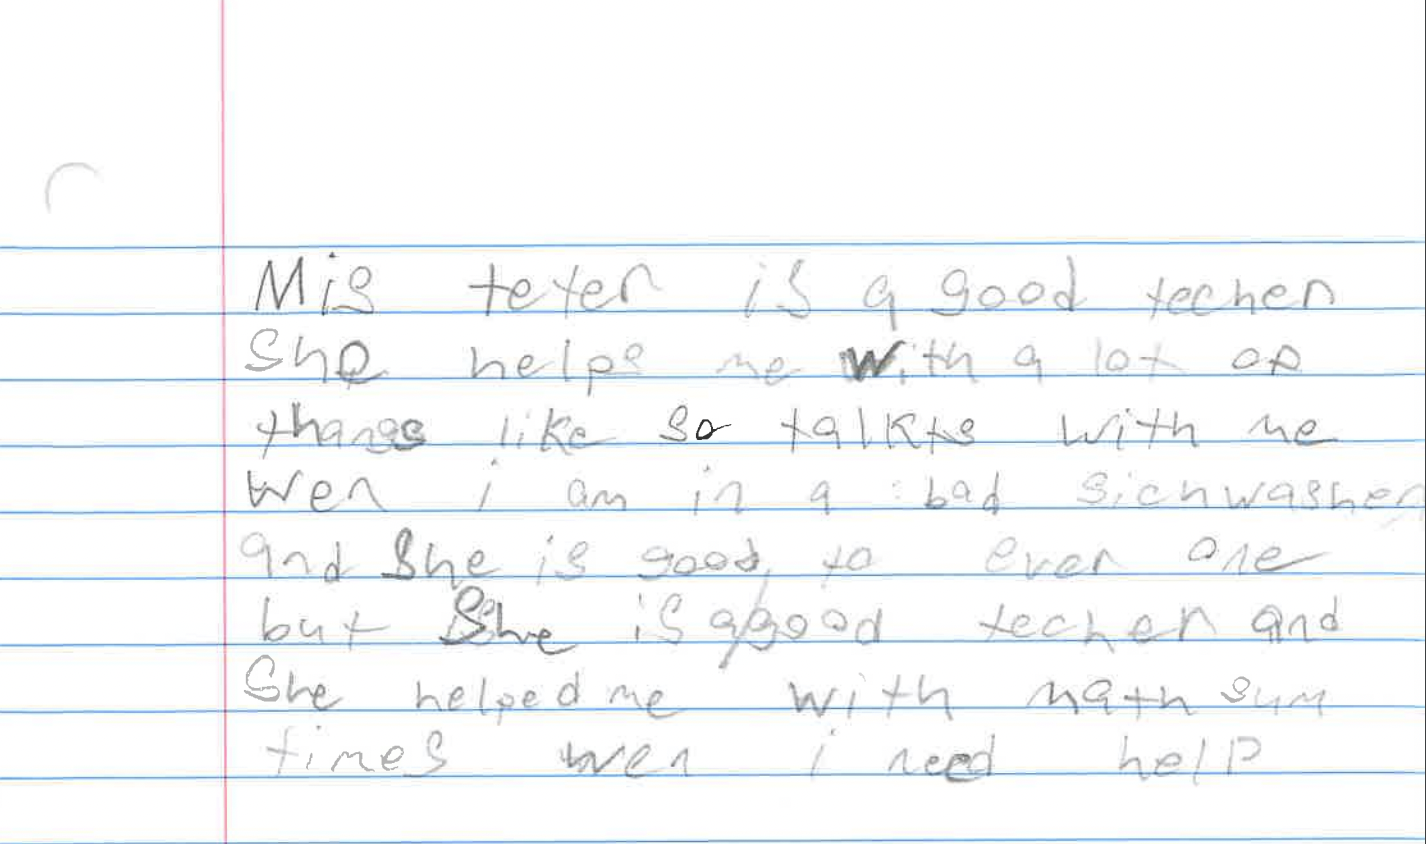 Mis teter is a good techer
She helps me with a lot op
thangs like so talkts with me
wen i am in a bad sichwasher
and She is good, to ever one
but She is a good techer and
She helped me with math sum
times wen i need help